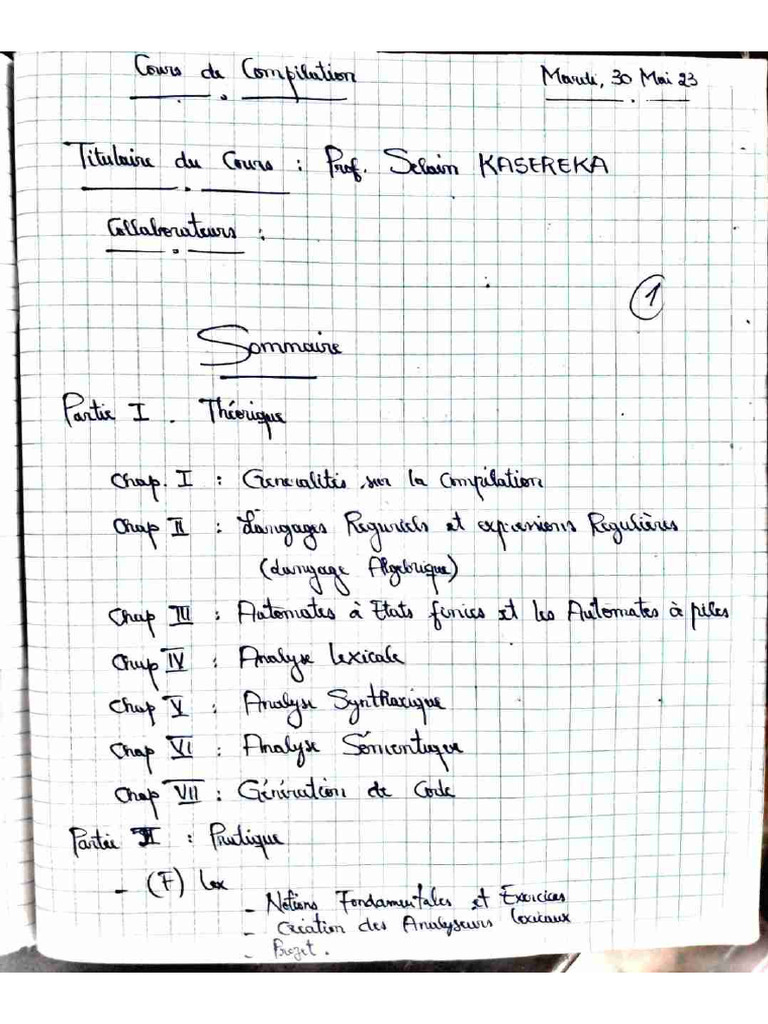 Cours de Compilation
Mardi, 30 Mai 23
Titulaire du Cours : Prof. Selain KASEREKA
Collaborateurs :
1
Sommaire
Partie I . Théorique
Chap. I : Generalités sur la Compilation
Chap II : Langages Reguriels et expressions Regulières
(Langage Algebrique)
Chap III : Automates à Etats finies et les Automates à piles
Chap IV : Analyse Lexicale
Chap V : Analyse Synthaxique
Chap VI : Analyse Sémentique
Chap VII : Génération de Code
Partie II : Pratique
- (F) Lex
- Notions Fondamentales et Exercices
- Création des Analyseurs lexicaux
- Projet .